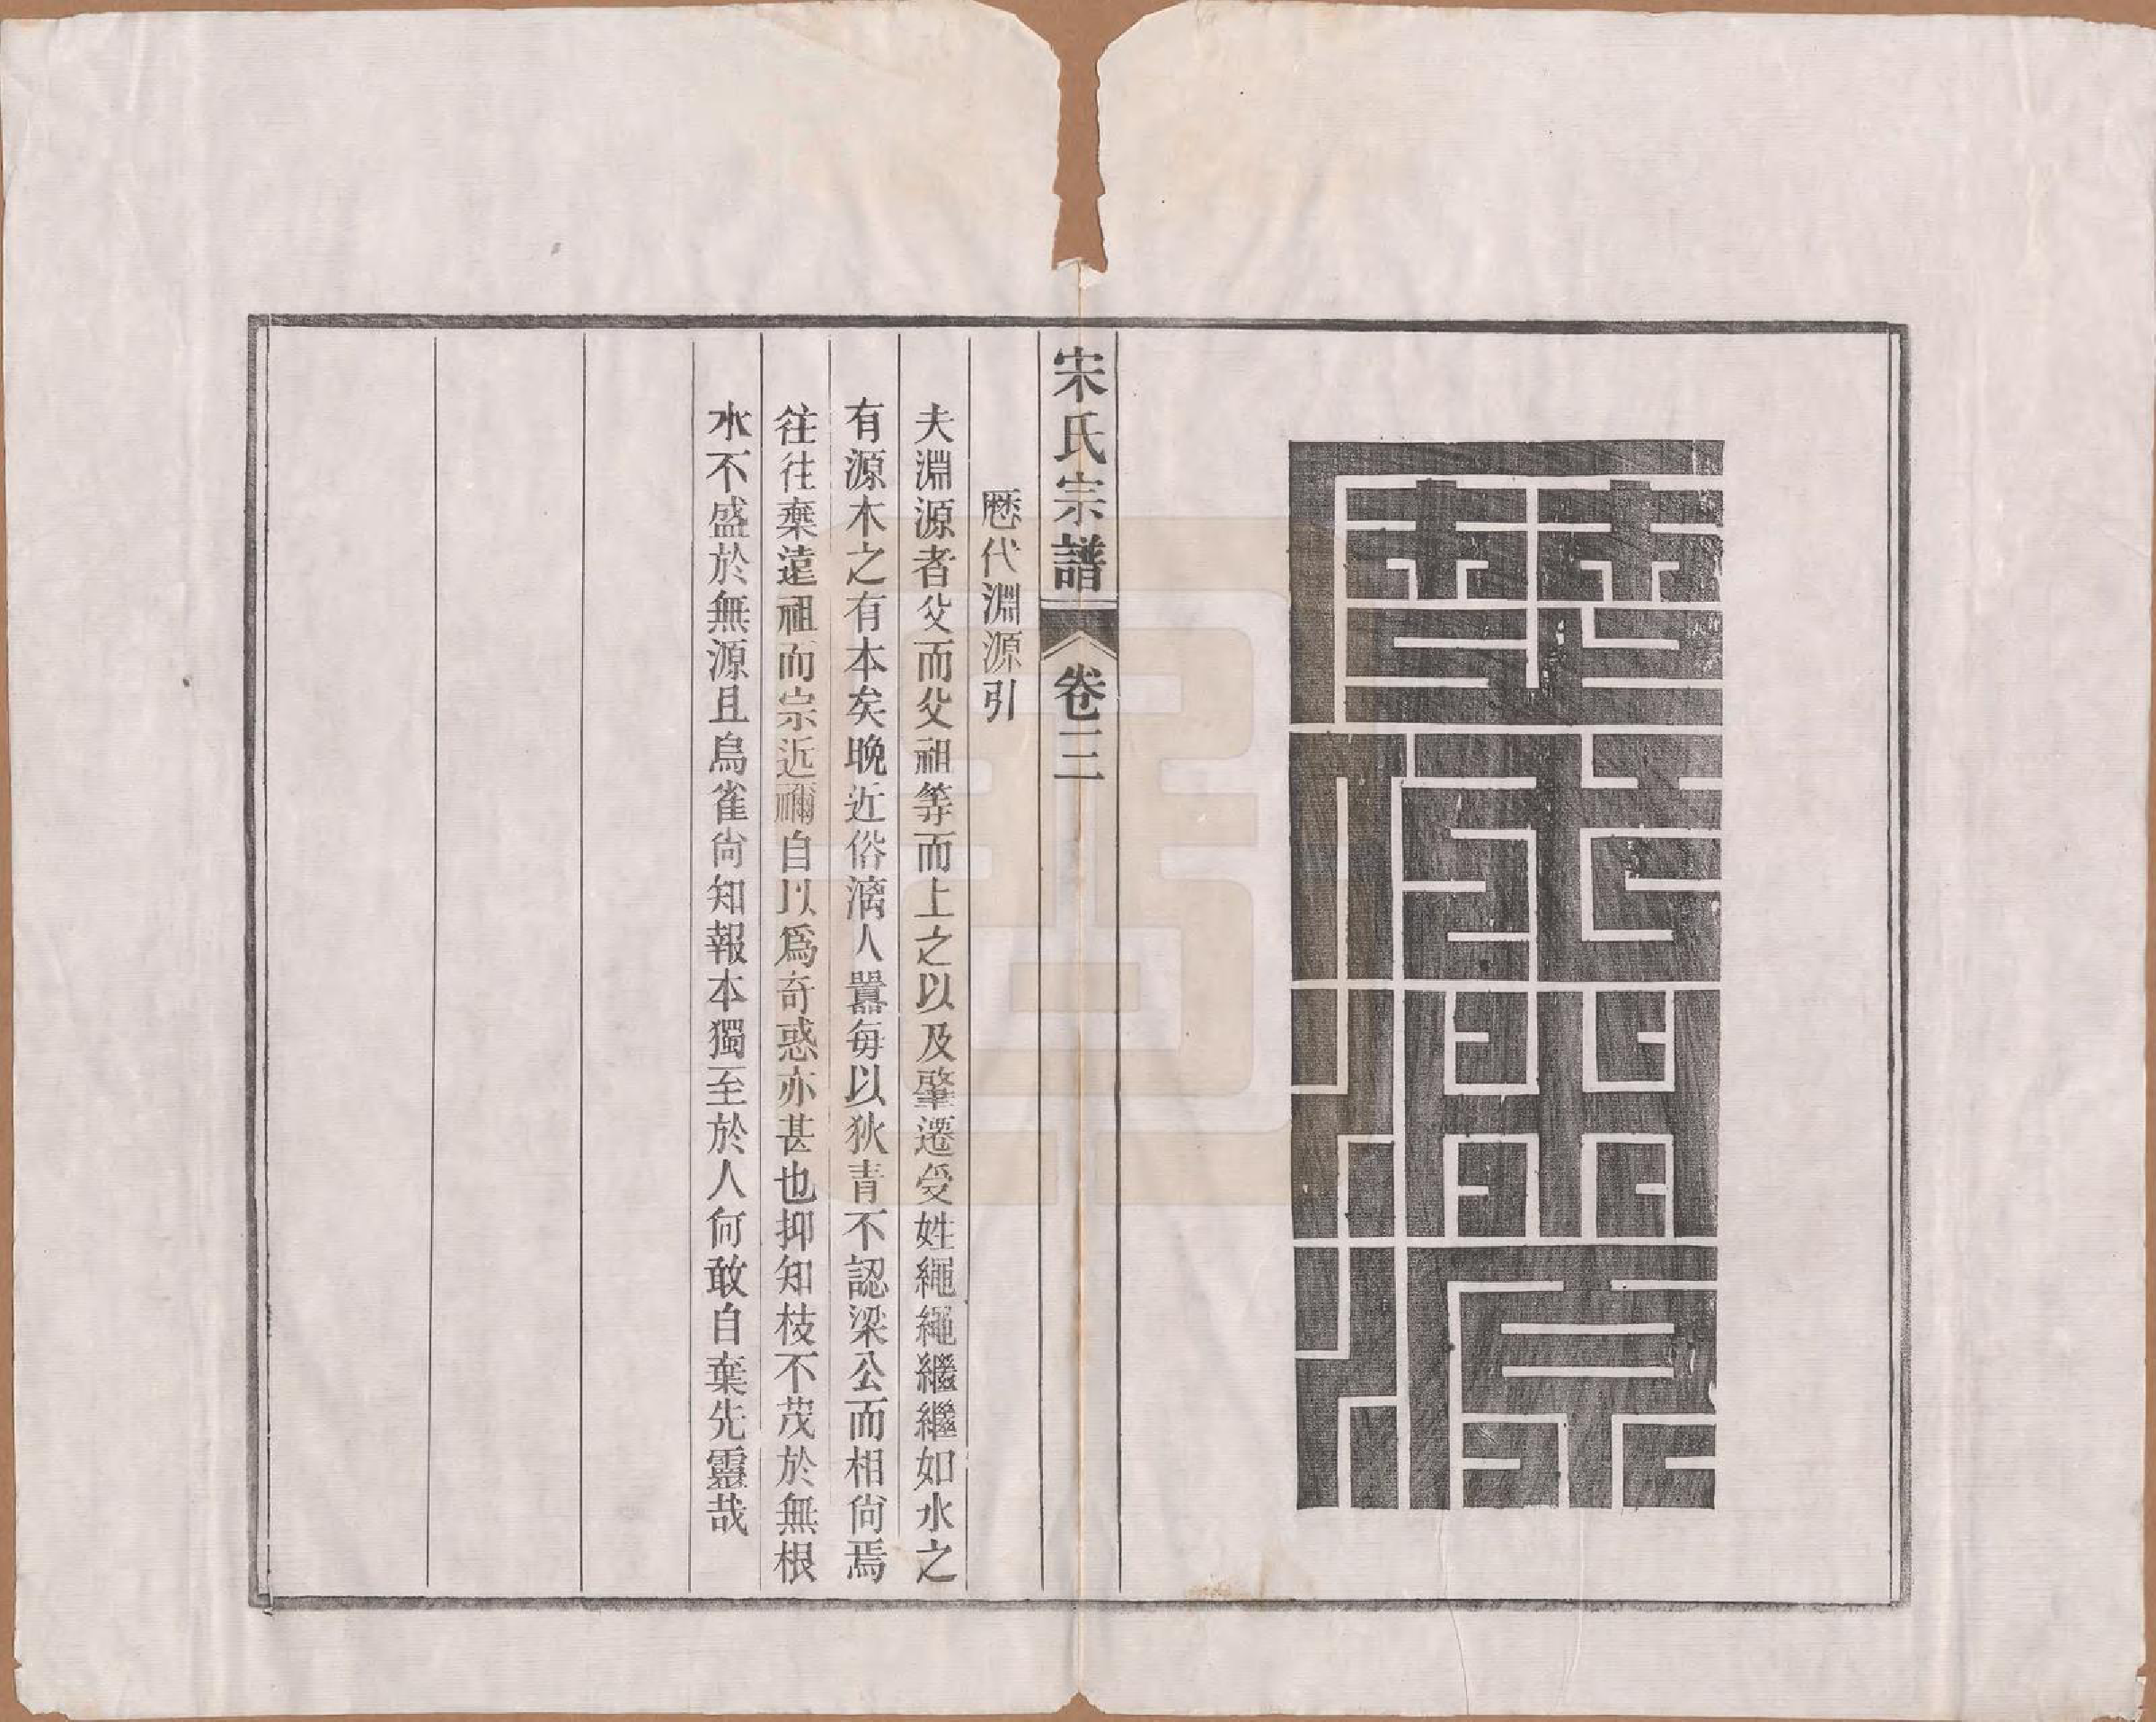 歷代淵源
宋氏宗譜 卷三
厯代淵源引
夫淵源者父而父祖等而上之以及肇遷受姓繩繩繼繼如水之
有源木之有本矣晚近俗漓人囂每以狄青不認梁公而相尙焉
往往棄遠祖而宗近禰自以爲奇惑亦甚也抑知枝不茂於無根
水不盛於無源且烏雀尙知報本獨至於人何敢自棄先靈哉